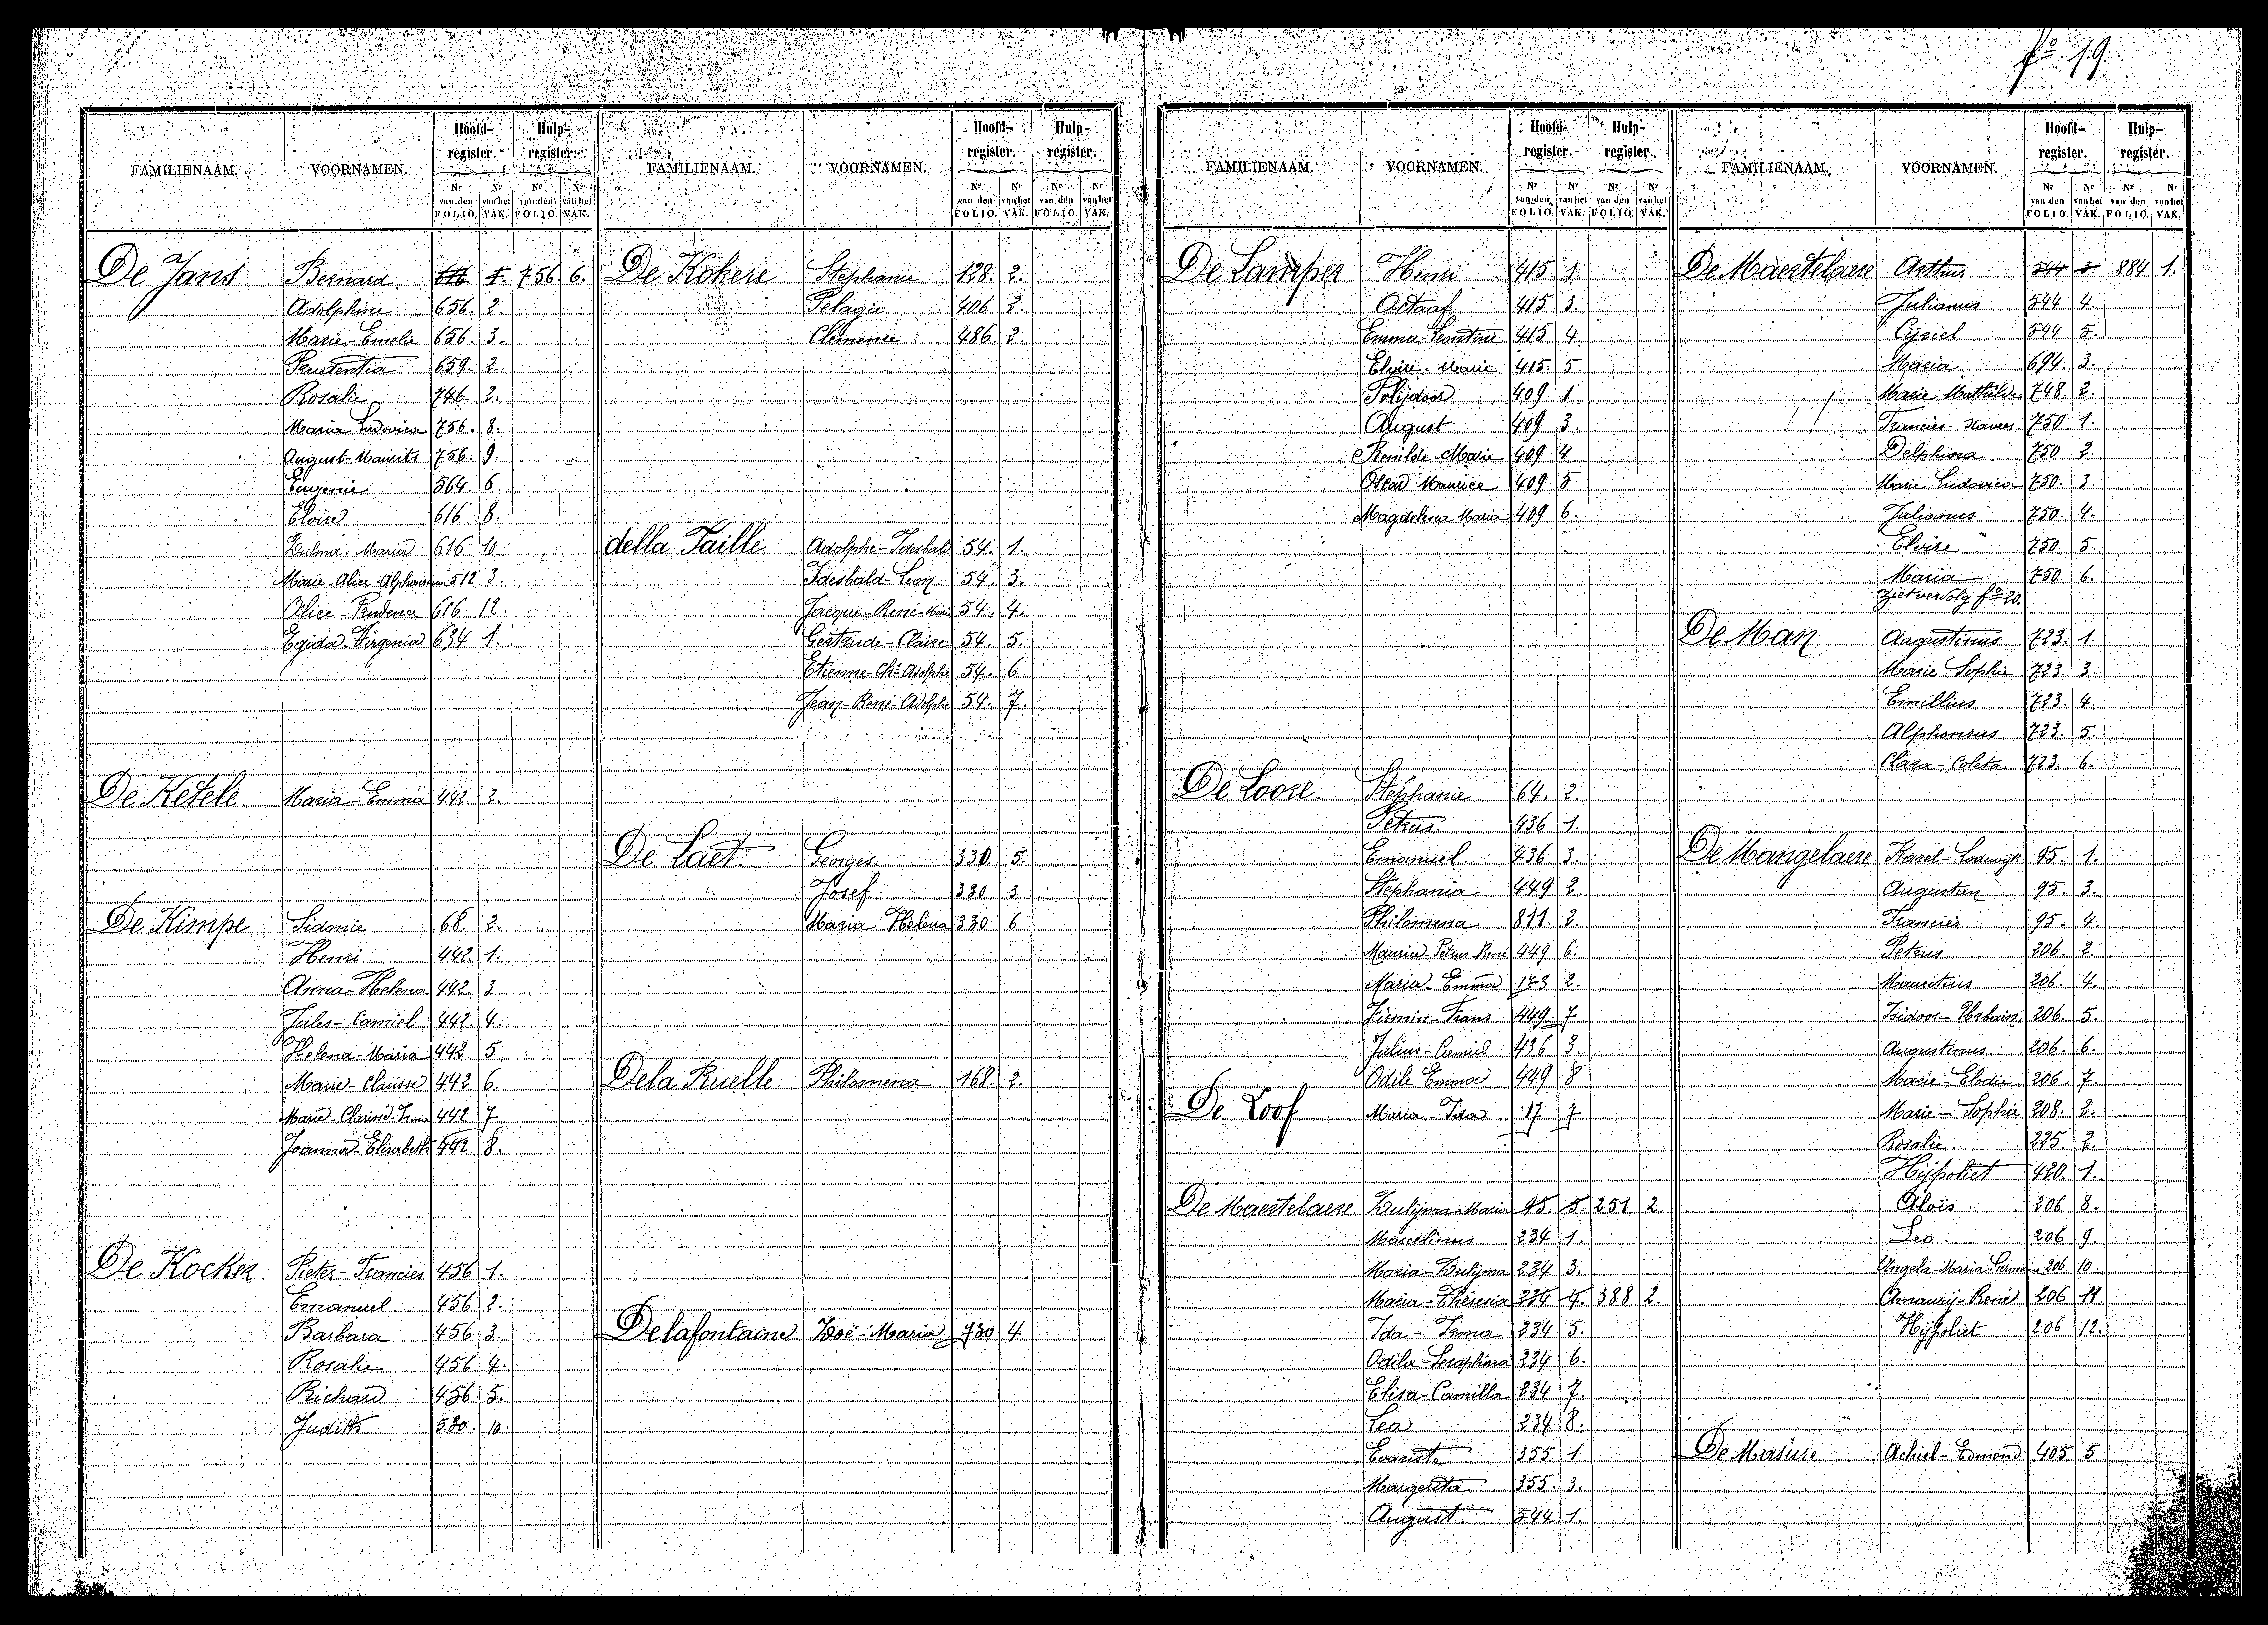 fº 19.
FAMILIENAAM. VOORNAMEN. Hoofd-register. Hulp-register.
Nr van den FOLIO. Nr van het VAK. Nr van den FOLIO. Nr van het VAK.
De Jans. Bernard 1. 756 6.
Adolphine 656. 2.
Marie-Emelie 656. 3.
Prudentia 659. 2.
Rosalie 746. 2.
Maria Ludovica 756. 8.
August-Maurits 756. 9.
Eugenie 564. 6.
Eloise 616 8.
Zulma-Maria 616 10
Marie-Alice-Alphonsina 512 3.
Alice-Prudence 616 12.
Egida-Virgenia 634 1.
De Ketele. Maria-Emma 442 2.
De Kimpe Sidonie 68. 2.
Henri 442. 1.
Anna-Helena 442 3
Jules-Camiel 442. 4.
Helena-Maria 442 5
Marie-Clarisse 442 6.
Marie-Clarisse-Irma 442 7
Joanna-Elisabeth 442 8.
De Kocker. Pieter-Francies 456 1.
Emanuel. 456 2.
Barbara 456 3.
Rosalie 456 4.
Richard 456 5.
Judith 580. 10.
FAMILIENAAM. VOORNAMEN. Hoofd-register. Hulp-register.
Nr. van den FOLIO. Nr van het VAK. Nr van den FOLIO. Nr van het VAK.
De Kokere Stephanie 128. 2.
Pelagie 406 2.
Clemence 486. 2.
della Faille Adolphe-Idesbald 54. 1.
Idesbald-Leon 54. 3.
Jacque-René-Marie 54. 4.
Gertrude-Claire 54. 5.
Etienne-Chs Adolphe 54. 6
Jean-René-Adolphe 54. 7.
De Laet. Georges 330. 5.
Josef. 330 3
Maria Helena 330 6
De la Ruelle Philomena 168. 2.
Delafontaine Zoë-Maria 730 4
FAMILIENAAM. VOORNAMEN. Hoofd-register. Hulp-register.
Nr. van den FOLIO. Nr van het VAK. Nr van den FOLIO. Nr van het VAK.
De Lamper Henri 415 1.
Octaaf 415 3.
Emma-Leontine 415 4.
Elvire-Marie 415. 5.
Polijdoor 409 1
August 409 3.
Remilde-Marie 409 4
Oscar Maurice 409 5
Magdelena Maria 409 6.
De Looze. Stéphanie 64. 2.
Petrus. 436 1.
Emanuel. 436 3.
Stephania 449 2.
Philomena 811. 2.
Maurice-Petrus-René 449 6.
Maria-Emma 173 2.
Firmin-Frans. 449 7
Julius-Camiel 436 3.
Odile Emma 449 8
De Loof Maria-Ida 17 7
De Maertelaere. Zulijma-Maria 95. 5. 251 2.
Marcelinus 234 1.
Maria-Zulijma 234 3.
Maria-Théresia 234 4. 388 2.
Ida-Irma 234 5.
Odila-Seraphina 234 6.
Elisa-Camilla 234 7.
Lea 234 8.
Evariste 355. 1
Margerita 355. 3.
August. 544 1.
FAMILIENAAM. VOORNAMEN. Hoofd-register. Hulp-register.
Nr van den FOLIO. Nr van het VAK. Nr van den FOLIO. Nr van het VAK.
De Maertelaere Arthur 544 3 884 1.
Julianus 544 4.
Cijriel 544 5.
Maria 694. 3.
Marie-Mathilde 748. 2.
Francies-Xaveer 750 1.
Delphina 750 2.
Marie Ludovica 750. 3.
Julianus 750. 4.
Elvire 750. 5.
Maria 750. 6.
Ziet vervolg fº 20.
De Man Augustinus 723. 1.
Marie Sophie 723. 3.
Emillius 723. 4.
Alphonsus 723. 5.
Clara-Coleta 723. 6.
De Mangelaere Karel-Lodewijk 95. 1.
Augustien 95. 3.
Francies 95. 4.
Petrus 206. 2.
Mauritius 206. 4.
Isidoor-Urbain 206. 5.
Augustinus 206. 6.
Marie-Elodie 206. 7.
Marie-Sophie 208. 2.
Rosalie. 225. 2.
Hijpoliet 420. 1.
Aloïs 206 8.
Leo. 206 9.
Angela-Maria-Germaine 206 10.
Amaurij-René 206 11.
Hijpoliet 206 12.
De Masure Achiel-Edmond 405 5